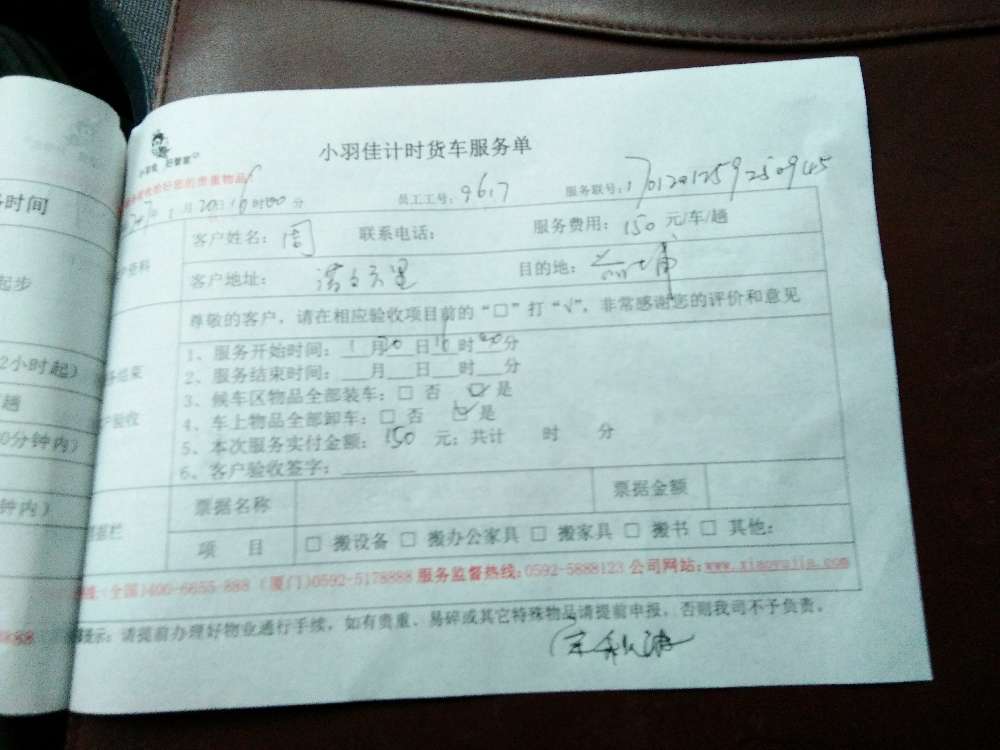 小羽佳计时货车服务单
小羽佳 好管家
收好您的贵重物品!
2017年1月20日16时00分 员工工号:9617 服务联号:1701201259250945
客户姓名:周 联系电话: 服务费用:150元/车/趟
客户地址: 目的地:
尊敬的客户,请在相应验收项目前的“□”打“√”,非常感谢您的评价和意见
1、服务开始时间:1月20日16时00分
2、服务结束时间:___月___日___时___分
3、候车区物品全部装车:□ 否 ☑ 是
4、车上物品全部卸车:□ 否 ☑ 是
5、本次服务实付金额:150 元;共计 时 分
6、客户验收签字:________
票据名称 票据金额
项 目 □ 搬设备 □ 搬办公家具 □ 搬家具 □ 搬书 □ 其他:
(全国)400-6655-888 (厦门)0592-5178888 服务监督热线:0592-5888123 公司网站:www.xiaoyujia.com
提示:请提前办理好物业通行手续,如有贵重、易碎或其它特殊物品请提前申报,否则我司不予负责。
时间
起步
2小时起)
趟
0分钟内)
钟内)